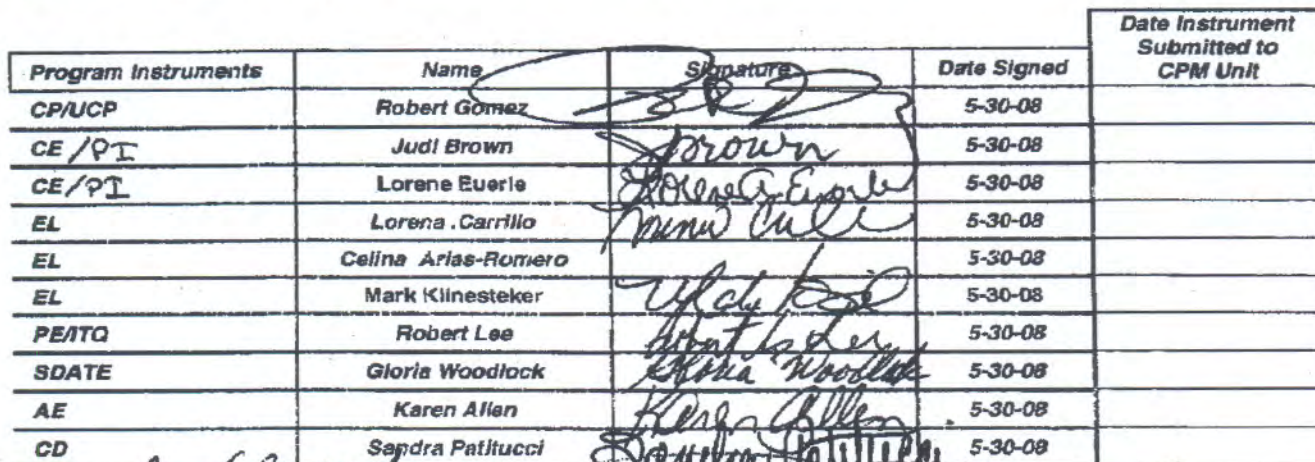 Date Instrument
Submitted to
CPM Unit
Program Instruments Name Signature Date Signed
CP/UCP Robert Gomez 5-30-08
CE /PI Judi Brown Brown 5-30-08
CE/PI Lorene Euerle Lorene A. Euerle 5-30-08
EL Lorena .Carrillo 5-30-08
EL Celina Arias-Romero 5-30-08
EL Mark Klinesteker 5-30-08
PE/ITQ Robert Lee Robert Lee 5-30-08
SDATE Gloria Woodlock Gloria Woodlock 5-30-08
AE Karen Allen Karen Allen 5-30-08
CD Sandra Patitucci 5-30-08